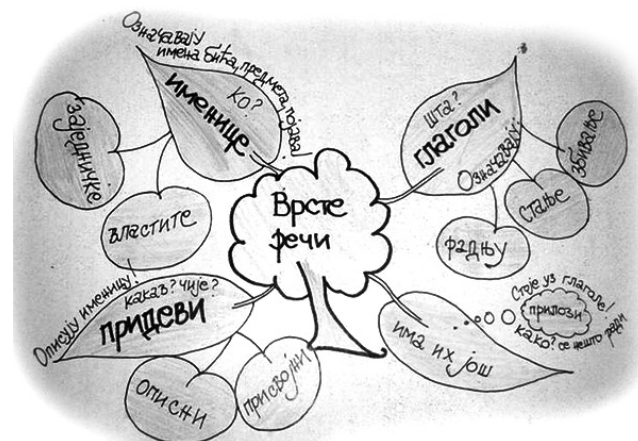 Означавају
имена бића, предмета, појава!
ко?
именице
заједничке
властите
шта?
глаголи
Означавају:
збивање
стање
радњу
Врсте
речи
Описују именицу!
какав? чије?
придеви
описни
присвојни
има их још
Стоје уз глаголе!
прилози
како? се нешто ради